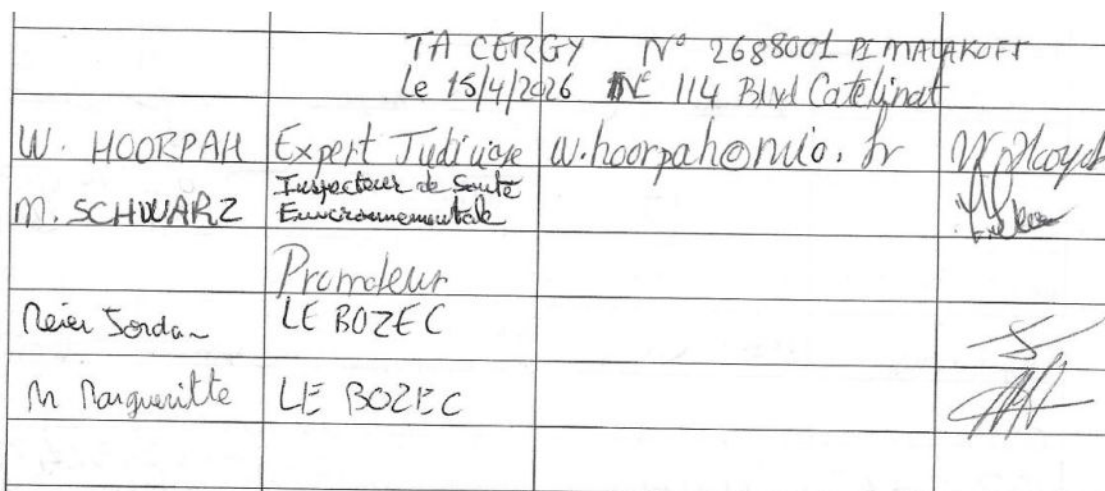 TA CERGY N° 2688001 PI MALAKOFF
Le 15/4/2026 114 Blvd Catelinat
W. HOORPAH Expert Judiciaire w.hoorpah@mio.fr
M. SCHWARZ Inspecteur de Santé
Environnementale
Promoteur
Meier Jordan LE BOZEC
M Margueritte LE BOZEC